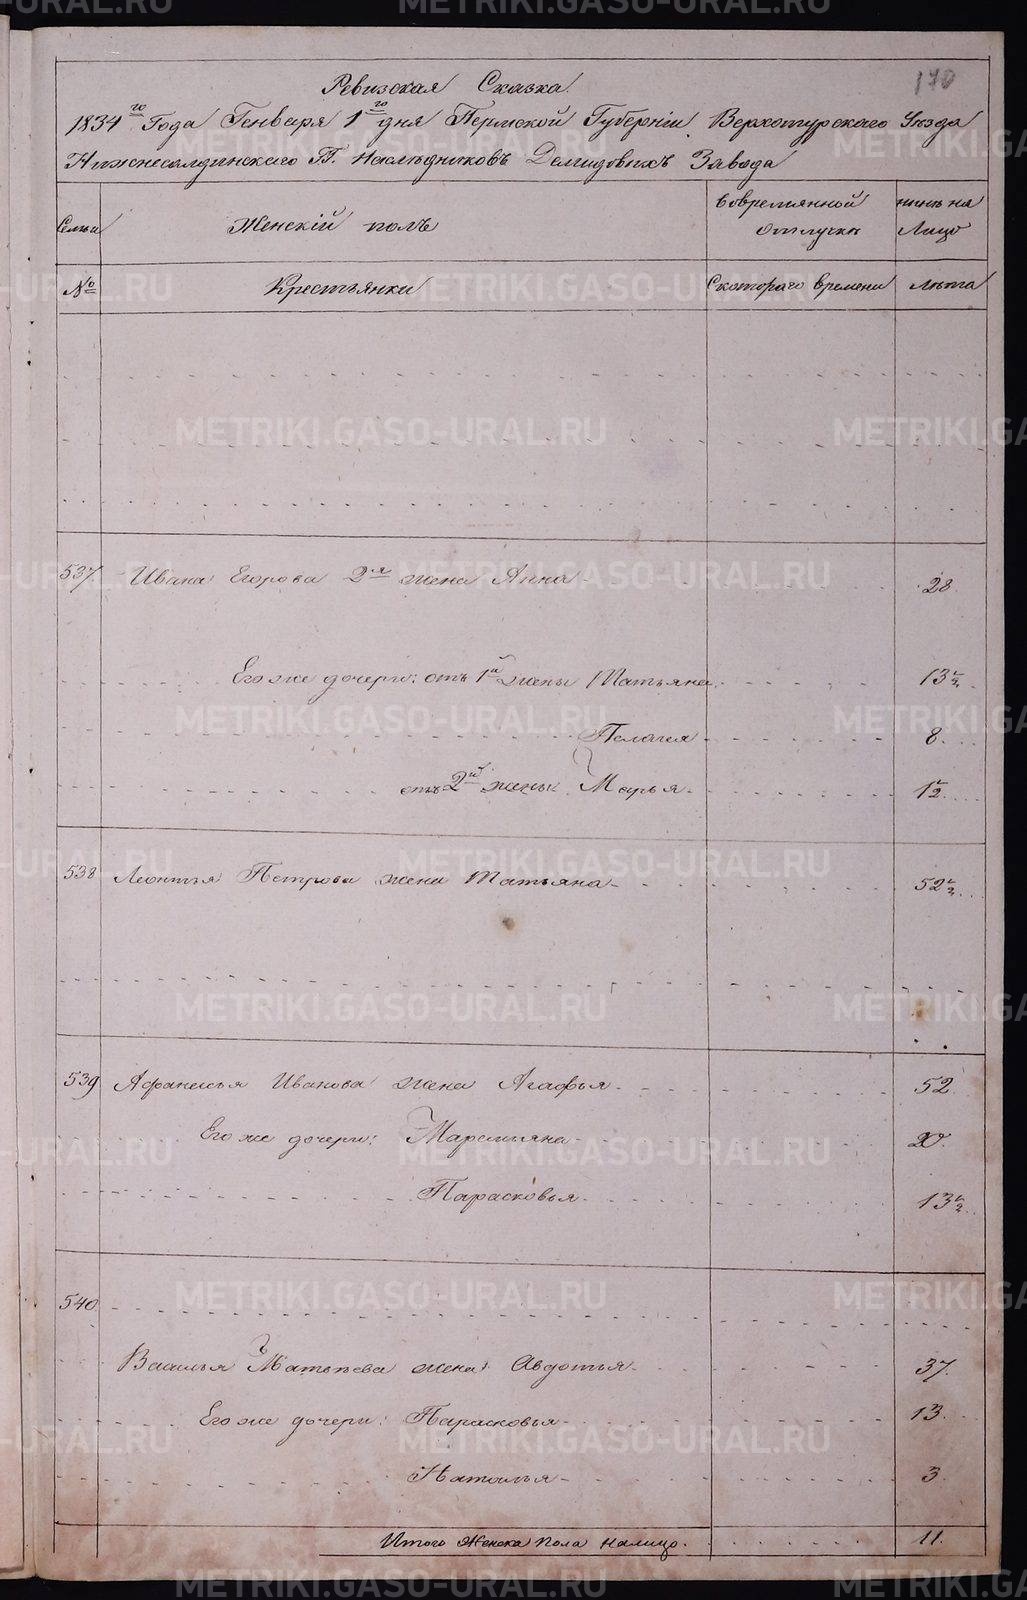 170
Ревизская Сказка
1834го Года Генваря 1го дня Пермской Губерніи Верхотурскаго Уѣзда
Нижнесалдинскаго Г.г. Наслѣдниковъ Демидовыхъ Завода
Семьи Женскій полъ Вовремянной отлучкѣ нынѣ на Лицо
№ Крестьянки Скотораго времени лѣта
537 Ивана Егорова 2я жена Анна 28
Его же дочери: отъ 1й жены Татьяна 13½
Пелагея 8
отъ 2й жены Марья 1½
538 Леонтья Петрова жена Татьяна 52½
539 Афанасья Иванова жена Агафья 52
Его же дочери: Маремьяна 20
Парасковья 13½
540
Василья Матвѣева жена Авдотья 37
Его же дочери: Парасковья 13
Наталья 3
Итого Женска пола налицо 11
METRIKI.GASO-URAL.RU